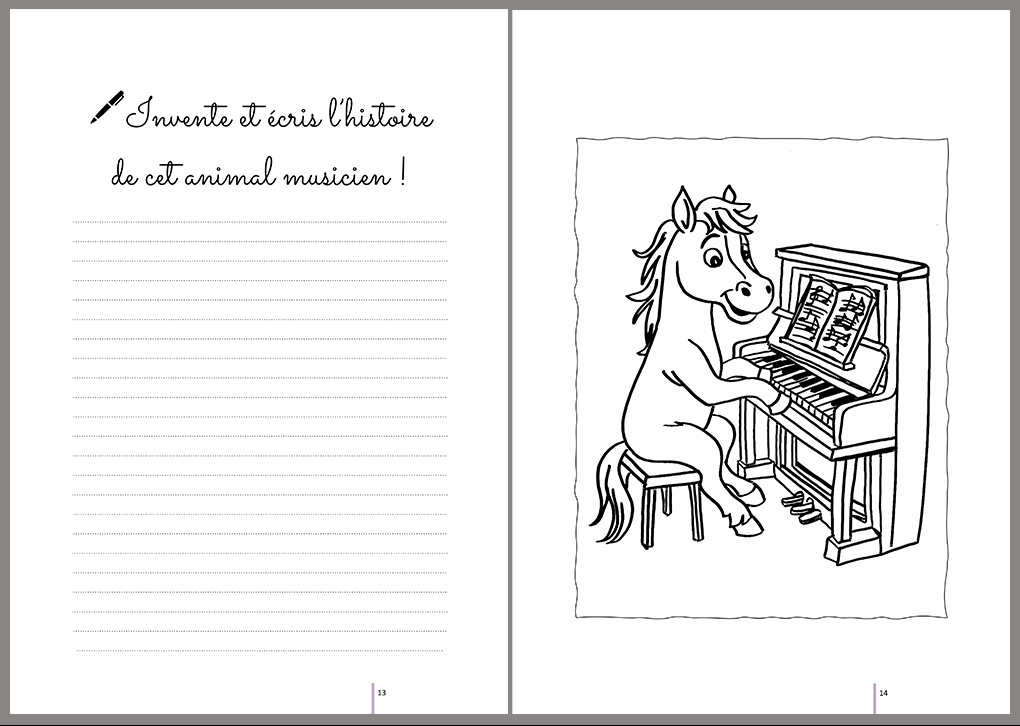 Invente et écris l'histoire
de cet animal musicien !
13
14